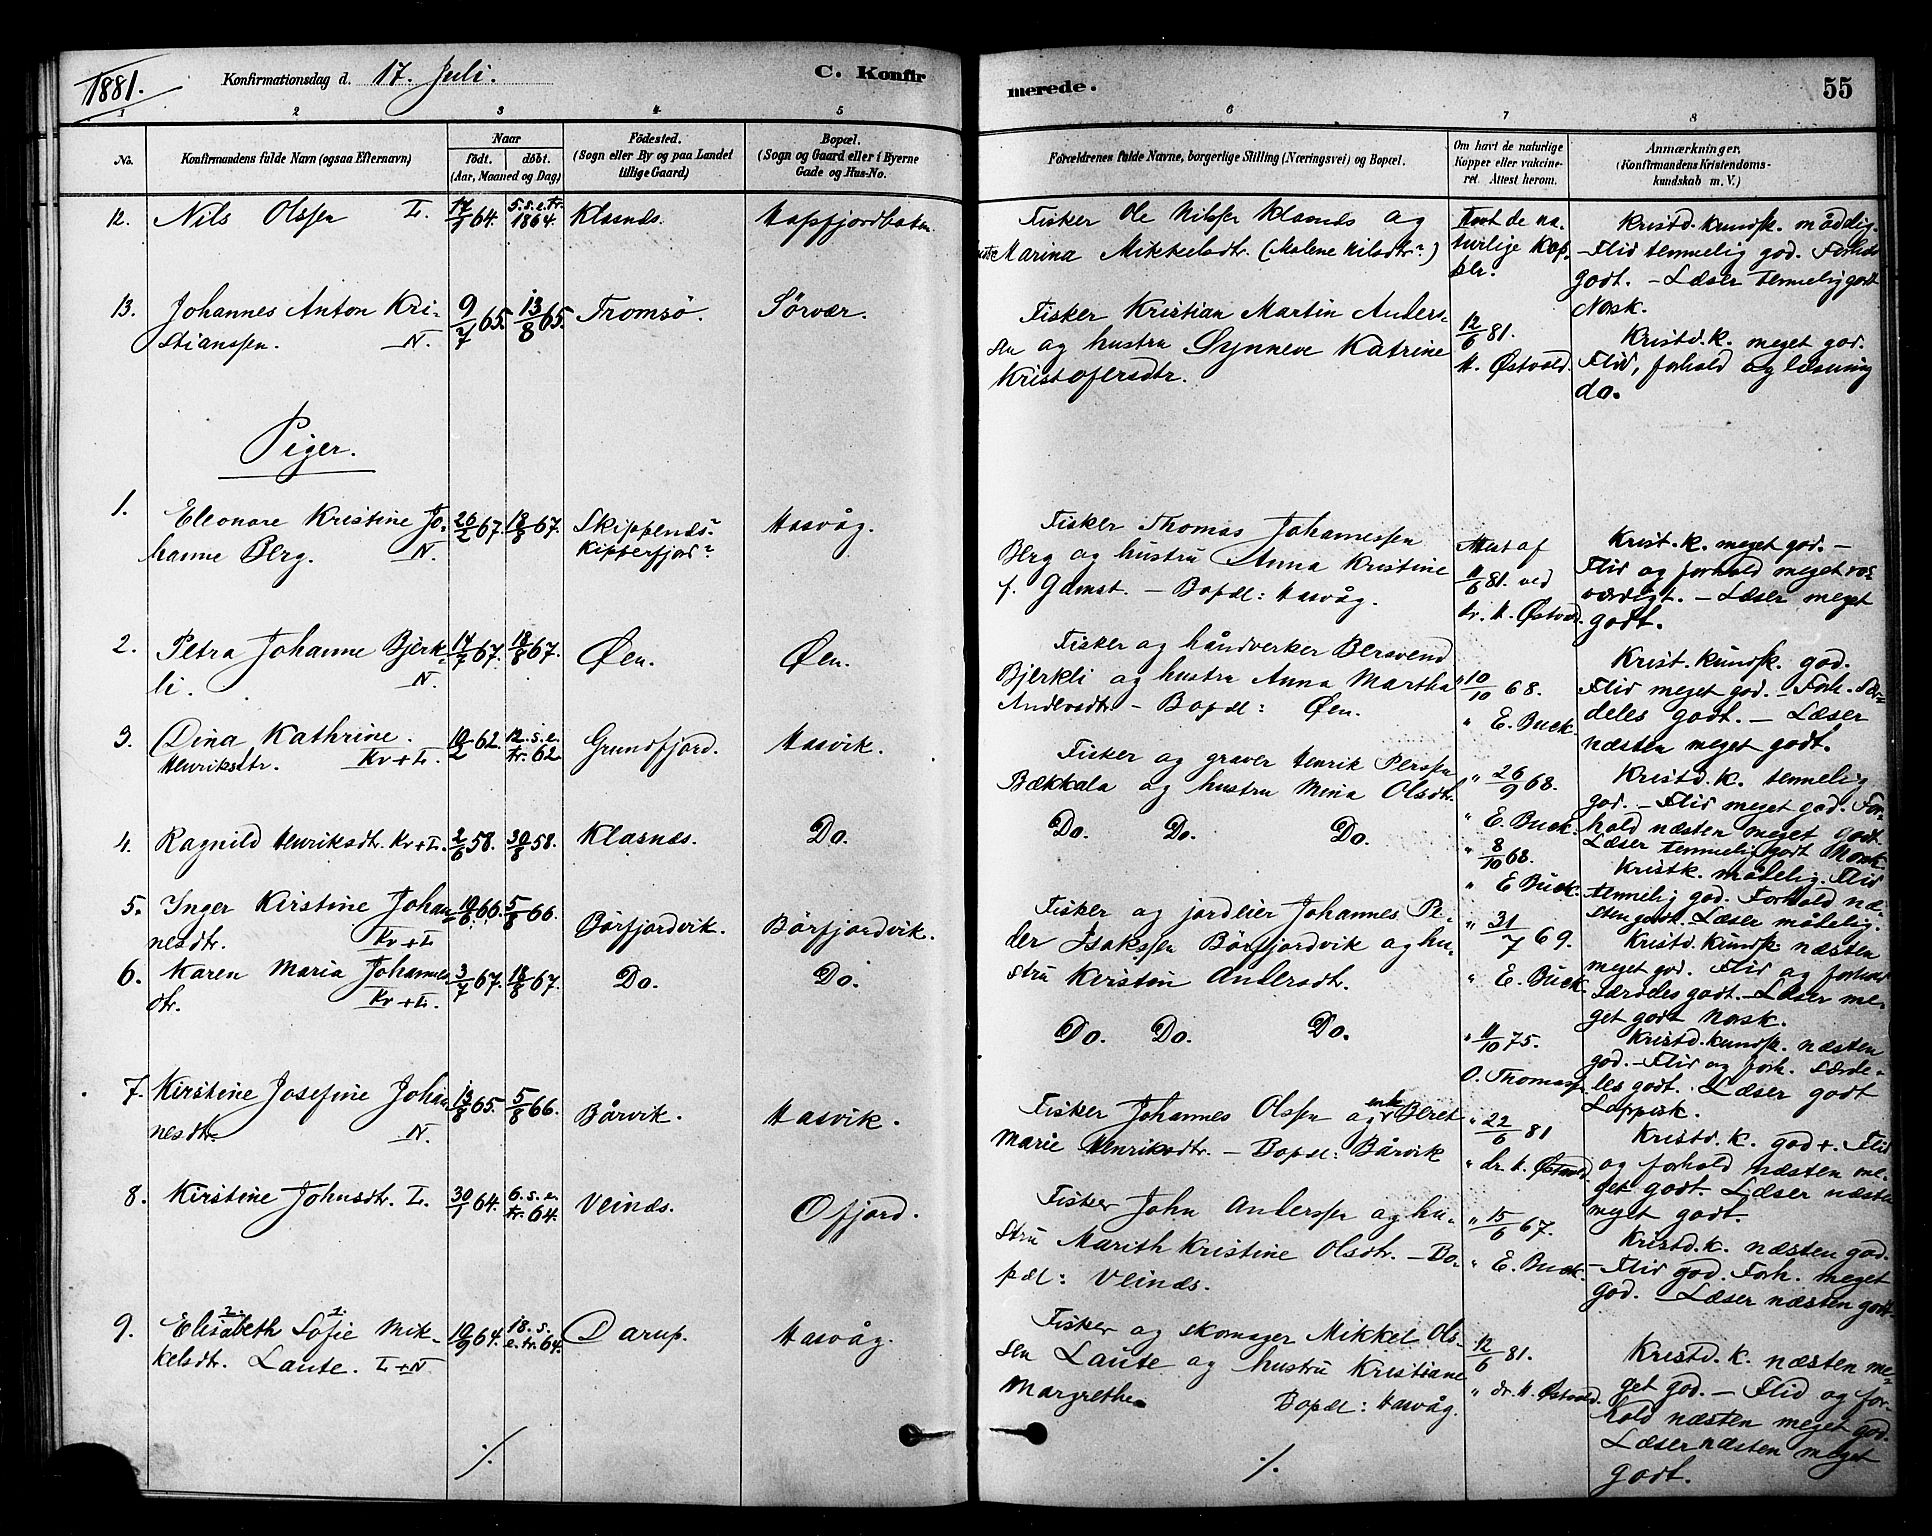 1881. Konfirmationsdag d. 17. Juli. C. Konfir
merede. 55
1 2 3 4 5
6 7 8
No. Konfirmandens fulde Navn (ogsaa Efternavn) Naar født. døbt. (Aar, Maaned og Dag) Fødested. (Sogn eller By og paa Landet tillige Gaard) Bopæl. (Sogn og Gaard eller i Byerne Gade og Hus-No.
Forældrenes fulde Navne, borgerlige Stilling (Næringsvei) og Bopæl. Om havt de naturlige Kopper eller vakcineret. Attest herom. Anmærkninger, (Konfirmandens Kristendomskundskab m. V.)
12. Nils Olssen L. 17/7 64. 5. s. e. tr. 1864. Klasnds.
Fisker Ole Nilssen Klasnds og
Marina Mikkelsdtr. (Malene Nilsdtr?)
Havt de na-
turlige Kop-
per.
Kristd. kundsk. måddlig.
- Flid temmelig god. Forhold
godt. - Læser temmelig godt
Norsk.
13. Johannes Anton Kri-
stianssen. N. 9/7 65. 13/8 65. Tromsö. Sörvær.
Fisker Kristian Martin Anders-
sen og hustru Synneve Katrine
Kristofersdtr.
12/6 81.
H. Østvold.
Kristd. K. meget god.
Flid, forhold og læsning
do.
Piger.
1. Eleonore Kristine Jo-
hanne Berg. N. 26/2 67. 18/8 67. Skippends-
kipperfjord? Hasvåg.
Fisker Thomas Johannessen
Berg og hustru Anna Kristine
f. Gamst. - Bopdl: Hasvåg.
Attest af
11/6 81. ved
dr. H. Østvold.
Krist. K. meget god. -
Flid og forhold meget ros-
værdigt. - Læser meget
godt.
2. Petra Johanne Bjerk-
li. N. 14/7 67. 18/8 67. Øen. Øen.
Fisker og håndverker Bersvend
Bjerkli og hustru Anna Martha
Andersdtr - Bopdl: Øen.
" 10/10 68.
" E. Buck.
Krist. kundsk. god.
Flid meget god. - Forh. sær-
deles godt. - Læser
næsten meget godt.
3. Dina Kathrine
Henriksdtr. Kv + L. 10/2 62. 12. s. e. tr. 62. Grundfjord. Hasvik.
Fisker og graver Henrik Perssen
Bækkala og hustru Mina Olsdtr.
" 26/9 68.
" E. Buck.
Kristd. K. temmelig
god. - Flid meget god. For-
hold næsten meget godt
Læser temmelig godt Norsk.
4. Ragnild Henriksdtr. Kv + L. 2/6 58. 30/8 58. Klasnæs. Do.
Do. Do. Do.
" 8/10 68.
" E Buck.
Kristk. måtelig. Flid
temmelig god. Forhold næ-
sten godt. Læser måtelig.
5. Inger Kirstine Johan-
nesdtr. Kv + L 5/8 66. Börfjordvik. Börfjordvik.
Fisker og jordeier Johannes Pe-
der Isakssen Börfjordvik og hu-
stru Kirsten Andersdtr.
" 31/7 69.
" E. Buck.
Kristd. kundsk. næsten
meget god. Flid og forhold
særdeles godt. - Læser me-
get godt norsk.
6. Karen Maria Johannes-
dtr. Kv + L. 3/7 67. 18/8 67. Do. Do.
Do. Do. Do.
" 11/10 75.
O. Thomassen
Kristd. kundsk. næsten
god. - Flid og forh. særde-
les godt. Læser godt
Lappisk.
7. Kirstine Josefine Johan-
nesdtr. N. 13/8 65. 5/8 66. Bårvik. Hasvik.
Fisker Johannes Olssen og enk Beret
Marie Henriksdtr. - Bopdl: Bårvik
" 22/6 81
" dr. H. Østvold
Kristd. K. god +. Flid
og forhold næsten me-
get godt. Læser næsten
meget godt.
8. Kirstine Johnsdtr. L. 30/1 64. 6. s. e. tr. 64. Veinds. Ofjord.
Fisker John Anderssen og hu-
stru Marith Kristine Olsdtr. - Bo-
pdl: Veinds.
" 15/6 67.
" E. Buck.
Kristd. K. næsten god.
- Flid god. Forh. meget
god. - Læser næsten godt.
9. Elisabeth 2. Sofie 1. Mik-
kelsdtr. Laute. L + N 10/9 64. 18. s. e. tr. 64. Darup. Hasvåg.
Fisker og skomager Mikkel Ols-
sen Laute og hustru Kristiane
Margrethe. Bopdl: Hasvåg.
12/6 81.
" dr. H. Østvold.
Kristd. K. næsten me-
get god. - Flid og for-
hold næsten meget god.
Læser næsten meget
godt.
./. ./.